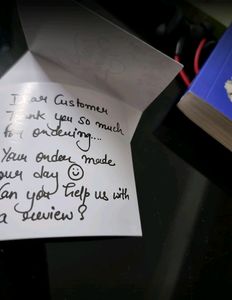 Dear Customer
Thank you so much
for ordering....
Your order made
our day ☺
Can you help us with
a review?